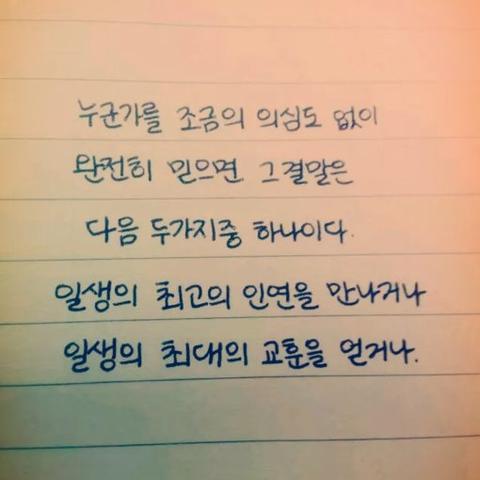 누군가를 조금의 의심도 없이
완전히 믿으면 그결말은
다음 두가지중 하나이다.
일생의 최고의 인연을 만나거나
일생의 최대의 교훈을 얻거나.